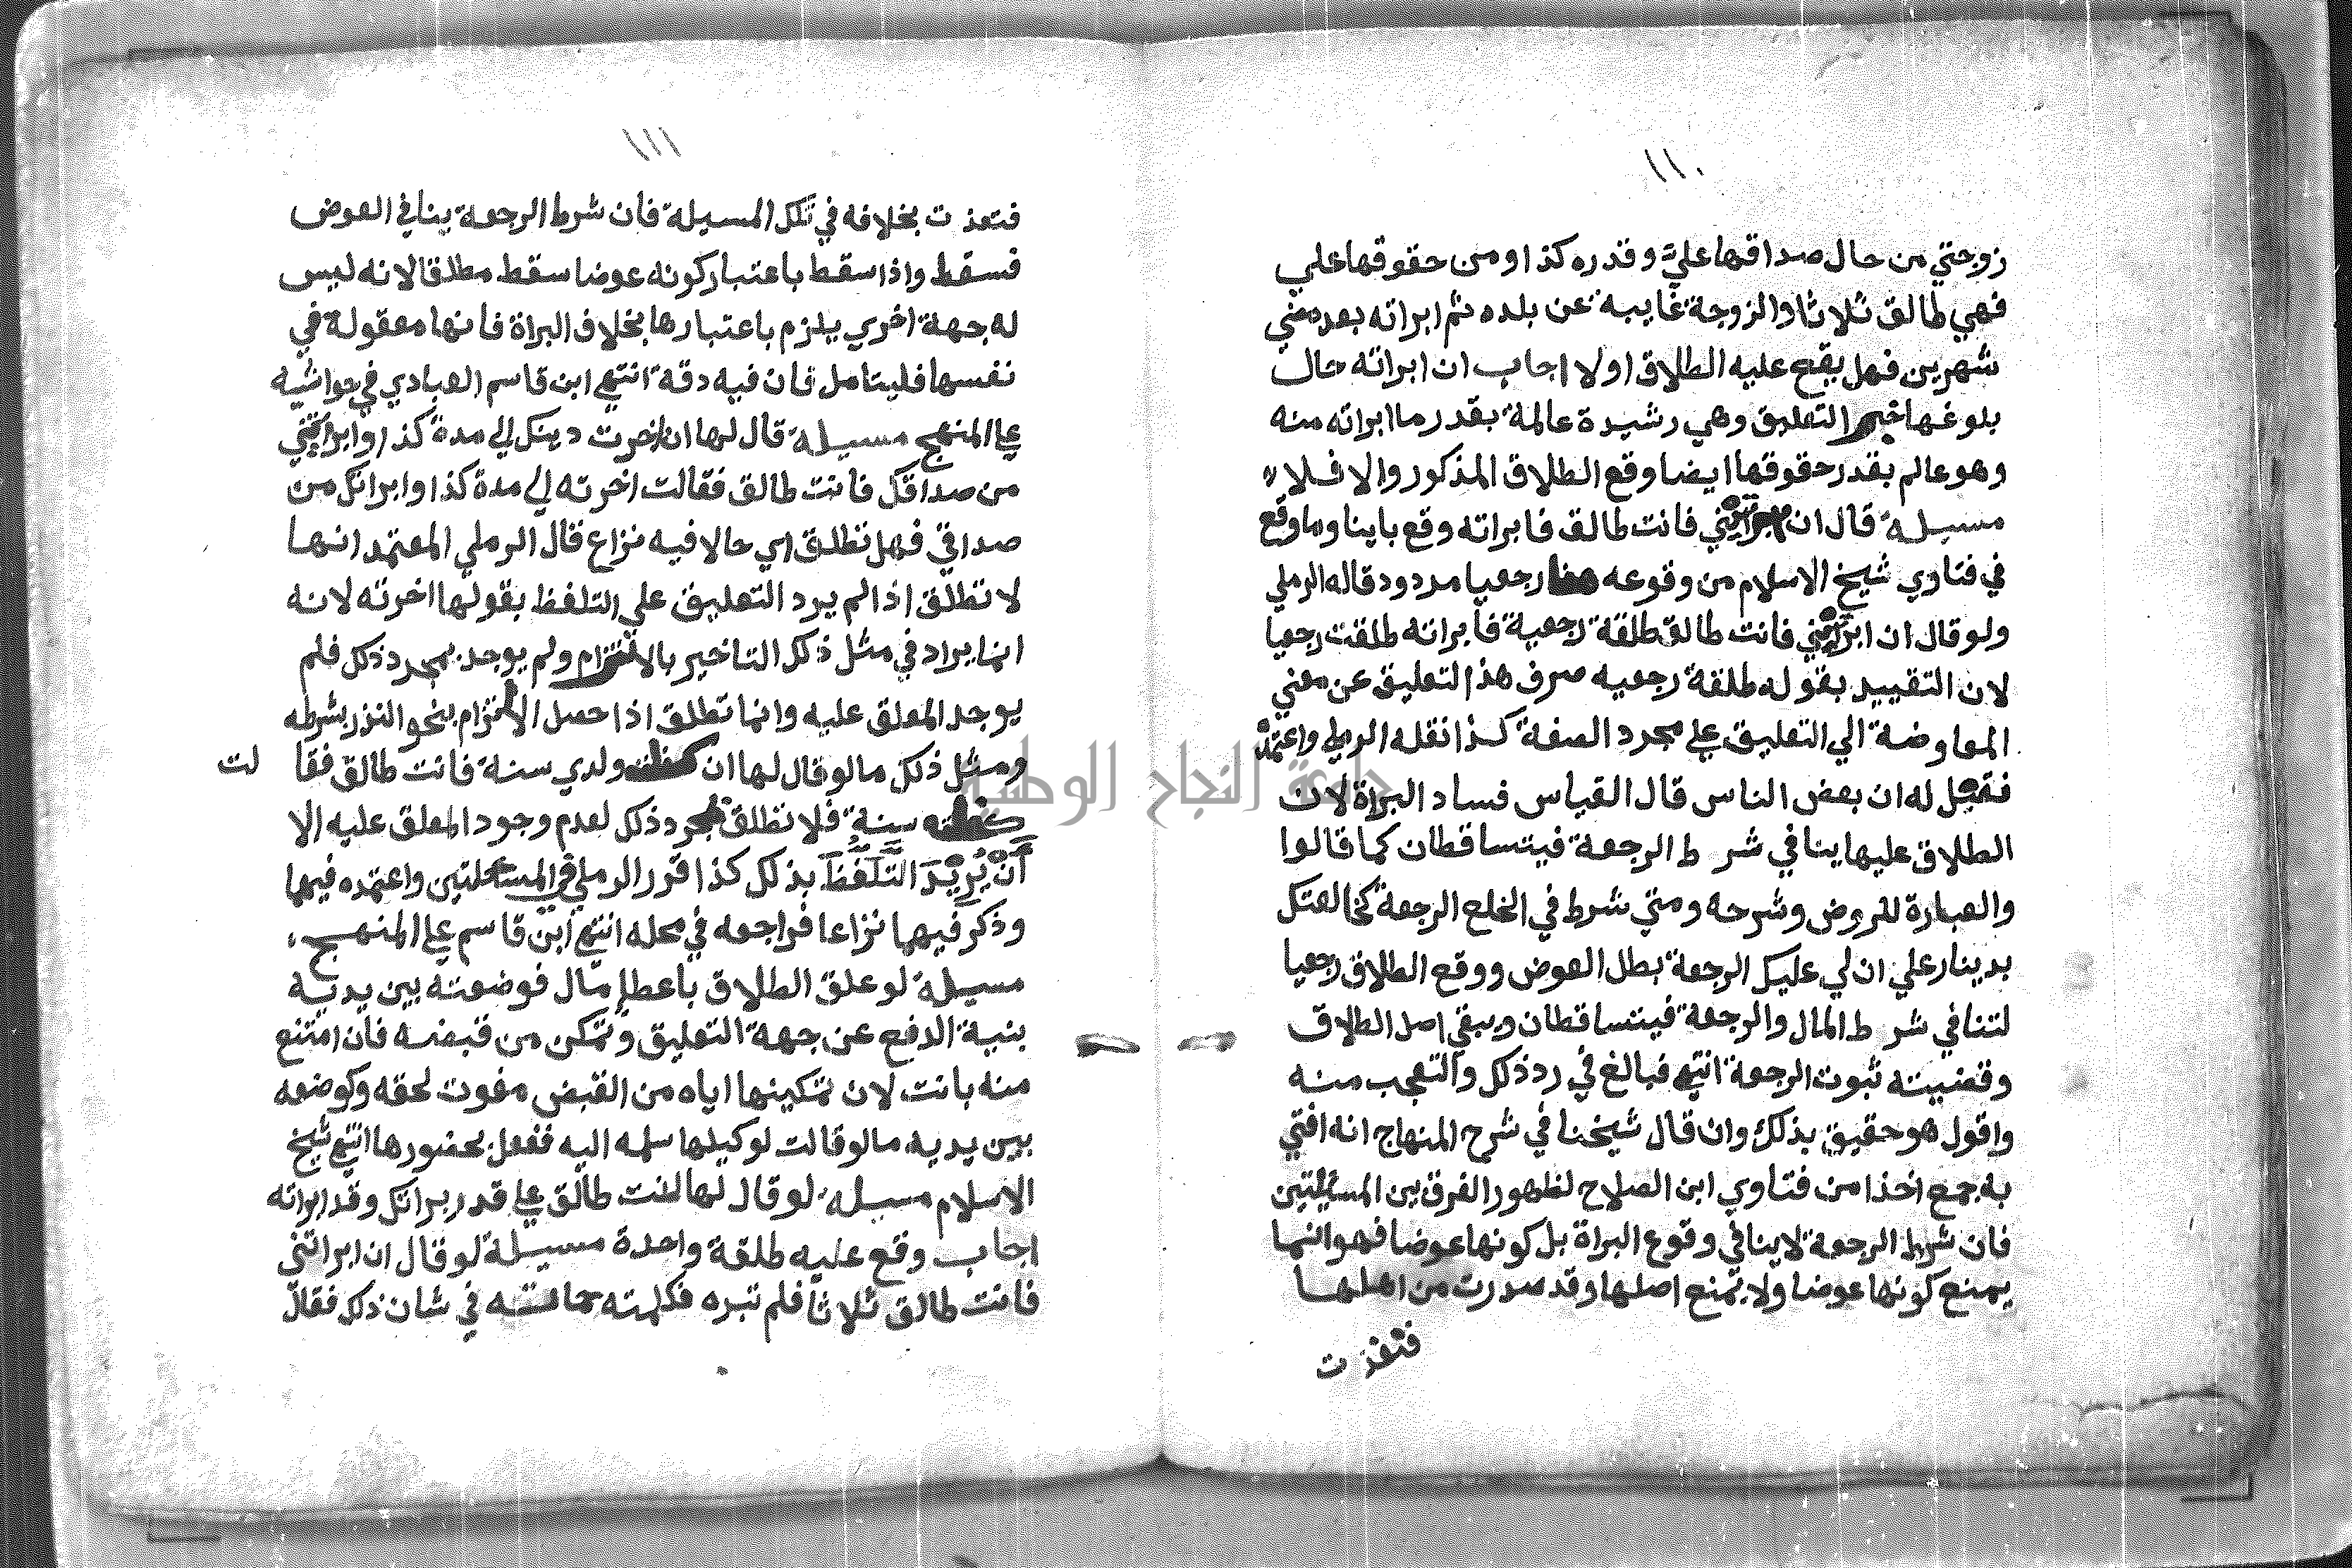 ١١٠
زوجتي من حال صداقها علي وقدره كذا ومن حقوقها علي
فهي طالق ثلاثا والزوجة غايبة عن بلده ثم ابراته بعد مضي
شهرين فهل يقع عليه الطلاق اولا اجاب ان ابراته حال
بلوغها التعليق وهي رشيدة عالمة بقدر ما ابراته منه
وهو عالم بقدر حقوقها ايضا وقع الطلاق المذكور والا فلا
مسيلة قال ان ابراتيني فانت طالق فابراته وقع باينا وما وقع
في فتاوي شيخ الاسلام من وقوعه رجعيا مردود قاله الرملي
ولو قال ان ابراتيني فانت طالق طلقة رجعية فابراته طلقت رجعيا
لان التقييد بقوله طلقة رجعيه صرف هذا التعليق عن معني
المعاوضة الي التعليق علي مجرد الصفة كذا نقله الرملي واعتمده
فقيل له ان بعض الناس قال القياس فساد البراة لان
الطلاق عليها ينافي شرط الرجعة فيتساقطان كما قالوا
والعبارة للروض وشرحه ومتي شرط في الخلع الرجعة كخالعتك
بدينار علي ان لي عليك الرجعة بطل العوض ووقع الطلاق رجعيا
لتنافي شرط المال والرجعة فيتساقطان ويبقي اصل الطلاق
وقضيته ثبوت الرجعة انتهي فبالغ في رد ذلك والتعجب منه
واقول هو حقيق بذلك وان قال شيخنا في شرح المنهاج انه افتي
به جمع اخذا من فتاوي ابن الصلاح لظهور الفرق بين المسيلتين
فان شرط الرجعة لا ينافي وقوع البراة بل كونها عوضا فهو انما
يمنع كونها عوضا ولا يمنع اصلها وقد صدرت من اهلها
فتنفذت
١١١
فتعذت بخلافه في تلك المسيلة فان شرط الرجعة ينافي العوض
فسقط واذا سقط باعتبار كونه عوضا سقط مطلقا لانه ليس
له جهة اخري يلزم باعتبارها بخلاف البراة فانها معقولة في
نفسها فليتامل فان فيه دقة انتهي ابن قاسم العبادي في حواشيه
علي المنهج مسيلة قال لها ان اخرت دينك الي مدة كذا وابراتيني
من صداقك فانت طالق فقالت اخرته الي مدة كذا وابراتك من
صداقي فهل تطلق اي حالا فيه نزاع قال الرملي المعتمد انها
لا تطلق اذا لم يرد التعليق علي التلفظ بقولها اخرته لانه
انما يراد في مثل ذلك التاخير بالالتزام ولم يوجد بمجرد ذلك فلم
يوجد المعلق عليه وانما تطلق اذا حصل الالتزام بنحو النذر بشرطه
ومثل ذلك ما لو قال لها ان كفلت ولدي سنة فانت طالق فقالت
كفلته سنة فلا تطلق بمجرد ذلك لعدم وجود المعلق عليه الا
أن يُرِيدَ التَّلَفُّظَ بذلك كذا قرر الرملي في المسئلتين واعتمده فيهما
وذكر فيهما نزاعا فراجعه في محله انتهي ابن قاسم علي المنهج
مسيلة لو علق الطلاق باعطا مال فوضعته بين يديه
بنية الدفع عن جهة التعليق وتمكن من قبضه فان امتنع
منه بانت لان تمكينها اياه من القبض مفوت لحقه وكوضعه
بين يديه ما لو قالت لوكيلها سلمه اليه ففعل بحضورها انتهي شيخ
الاسلام مسيلة لو قال لها انت طالق علي قدر براتك وقد ابراته
اجاب وقع عليه طلقة واحدة مسيلة لو قال ان ابراتني
فانت طالق ثلاثا فلم تبره فكلمته حماته في شان ذلك فقال
جامعة النجاح الوطنية